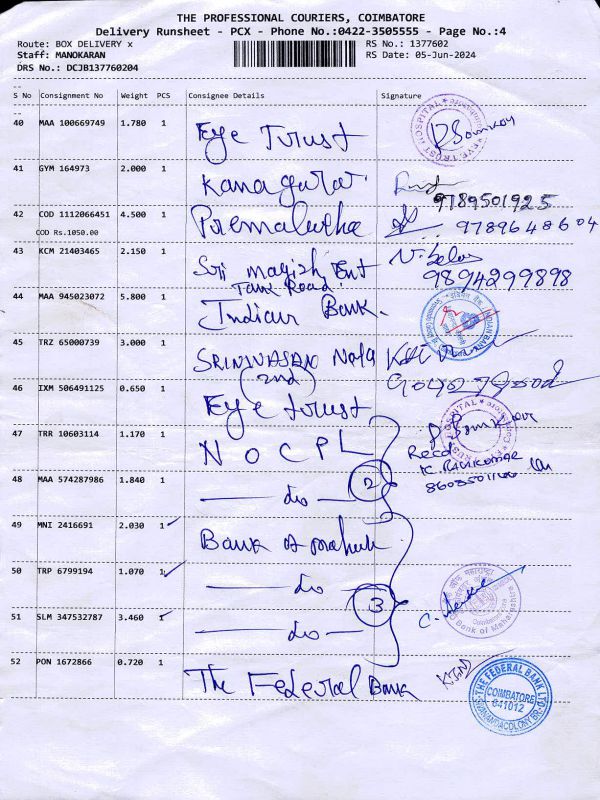 THE PROFESSIONAL COURIERS, COIMBATORE
Delivery Runsheet - PCX - Phone No.:0422-3505555 - Page No.:4
Route: BOX DELIVERY x RS No.: 1377602
Staff: MANOKARAN RS Date: 05-Jun-2024
DRS No.: DCJB137760204
S No Consignment No Weight PCS Consignee Details Signature
40 MAA 100669749 1.780 1 Eye Trust
EYE TRUST HOSPITAL
41 GYM 164973 2.000 1 Kanagaraj
9789501925
42 COD 1112066451 4.500 1 Premalatha 9789648604
COD Rs.1050.00
43 KCM 21403465 2.150 1 Sri magizh Ent
Tank Road. 9894299898
44 MAA 945023072 5.800 1 Indian Bank.
45 TRZ 65000739 3.000 1 SRINIVASAN
(2nd)
46 IXM 506491125 0.650 1 Eye trust
47 TRR 10603114 1.170 1 NOCPL
Recd
K. RAVIKUMAR
48 MAA 574287986 1.840 1 — do — 2
49 MNI 2416691 2.030 1 Bank of
50 TRP 6799194 1.070 1 — do —
3
Bank of Maharashtra
51 SLM 347532787 3.460 1 — do —
52 PON 1672866 0.720 1 The Federal Bank
THE FEDERAL BANK LTD.
COIMBATORE
641012